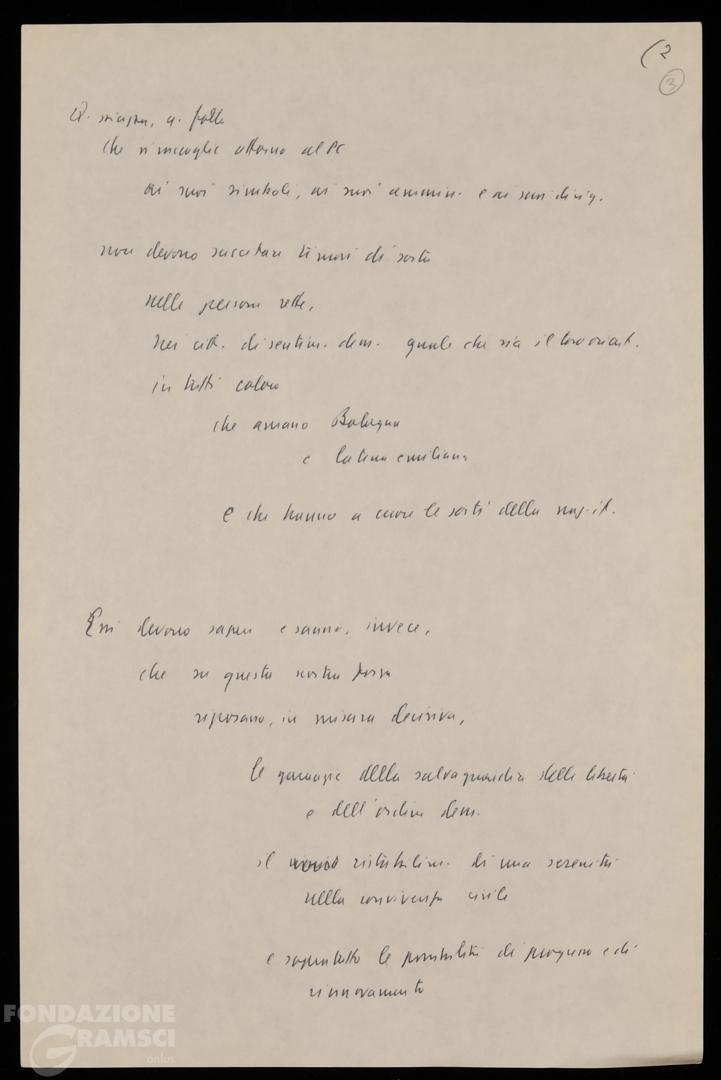 (2
3
Q. massa, q. folla
che si raccoglie attorno al PC
ai suoi simboli, ai suoi ammin. e ai suoi dirig.
non devono suscitare timori di sorta
nelle persone rette,
nei citt. di sentim. dem. quale che sia il loro orient.
in tutti coloro
che amano Bologna
e la terra emiliana
e che hanno a cuore le sorti della naz. it.
Essi devono sapere e sanno, invece,
che su questa nostra forza
riposano, in misura decisiva,
le garanzie della salvaguardia delle libertà
e dell'ordine dem.
il ristabilim. di una serenità
nella convivenza civile
e soprattutto le possibilità di progresso e di
rinnovamento
FONDAZIONE
GRAMSCI
onlus